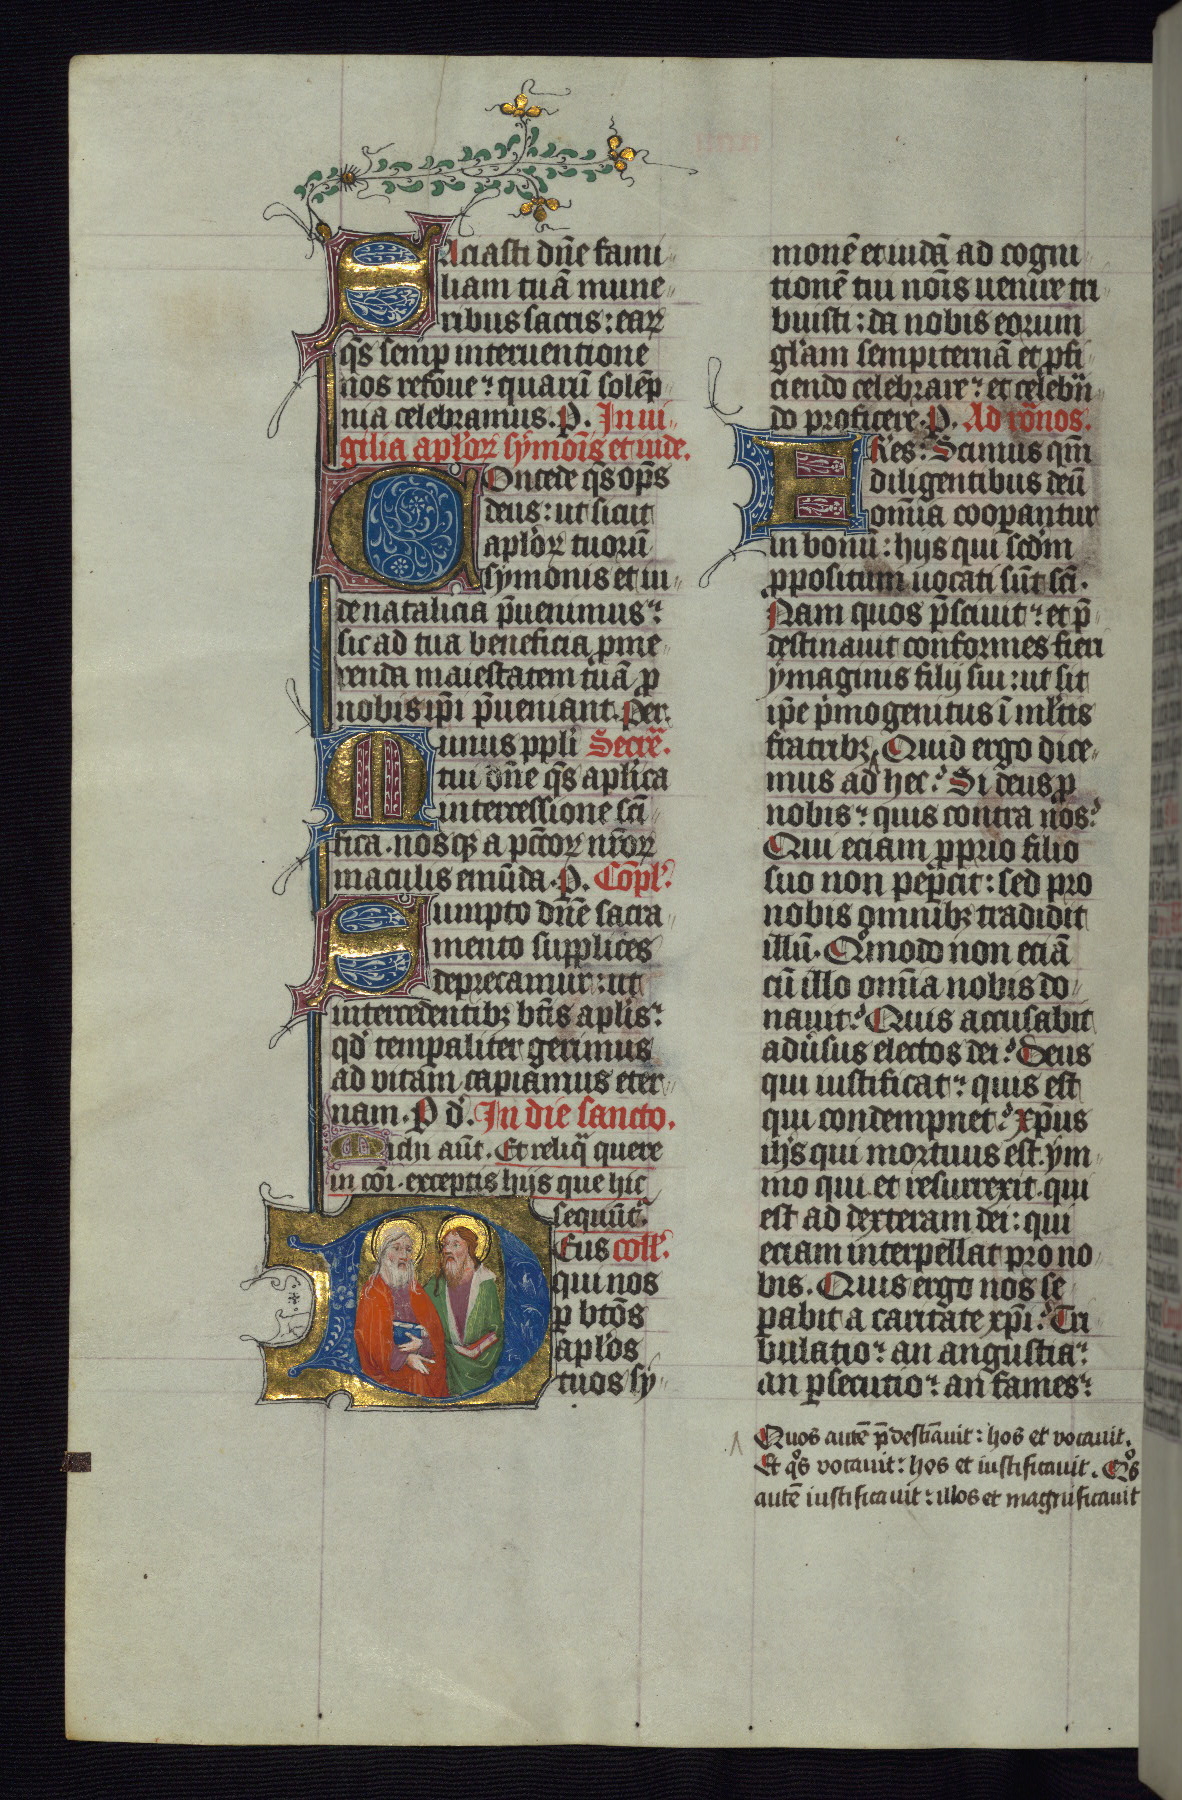 SAciasti dn̄e fami
liam tuā mune
ribus sacris: earꝝ
qs̄ semꝑ interuentione
nos refoue: quarū solēp
nia celebramus. P. In ui
gilia aplōrꝝ symoīs et iude.
COncede qs̄ op̄s
deus: ut sicut
aplōrꝝ tuorū
symonis et iu
de natalicia p̄uenimus:
sic ad tua beneficia ꝓme
renda maiestatem tuā ꝓ
nobis ip̄i p̄ueniant. Per.
Munus ppl̄i Secrē.
tui dn̄e qs̄ aplīca
intercessione scī
fica. nosqꝫ a pctōrꝝ nr̄orꝝ
maculis emūda. P. Cōpl̄.
Sumpto dn̄e sacra
mento supplices
deprecamur: ut
intercedentibꝫ btīs aplīs:
qd̄ temꝑaliter gerimus
ad vitam capiamus eter
nam. P d. In die sancto.
Michi aūt. Et reliq̄ quere
in cōi. exceptis hijs que hic
sequūt᷑.
DEus coll̄.
qui nos
ꝑ btōs
aplōs
tuos sy
monē et iudā ad cogni
tionē tui noīs uenire tri
buisti: da nobis eorum
glām sempiternā et ꝓfi
ciendo celebrare: et celebrā
do proficere. P. Ad rōnos.
FRēs: Scimus qm̄
diligentibus deū
omīa cooꝑantur
in bonū: hijs qui scdm̄
ꝓpositum uocati sūt scī.
Nam quos p̄sciuit: et p̄
destinauit conformes fieri
ymaginis filij sui: ut sit
ip̄e p̄mogenitus ī ml̄tis
fratribꝫ. Quid ergo dice
mus ad hec? Si deus ꝓ
nobis: quis contra nos?
Qui eciam ꝓprio filio
suo non peꝑcit: sed pro
nobis omnibꝫ tradidit
illū. Qͦmodo non eciā
cū illo omīa nobis do
nauit? Quis accusabit
adūsus electos dei? Deus
qui iustificat: quis est
qui condempnet? xp̄us
ihs̄ qui mortuus est. ym
mo qui et resurrexit. qui
est ad dexteram dei: qui
eciam interpellat pro no
bis. Quis ergo nos se
ꝑabit a caritate xp̄i? Tri
bulatio: an angustia:
an ꝑsecutio: an fames:
Quos autē p̄destīauit: hos et vocauit.
Et qͦs vocauit: hos et iustificauit. Qͦs
autē iustificauit: illos et magnificauit